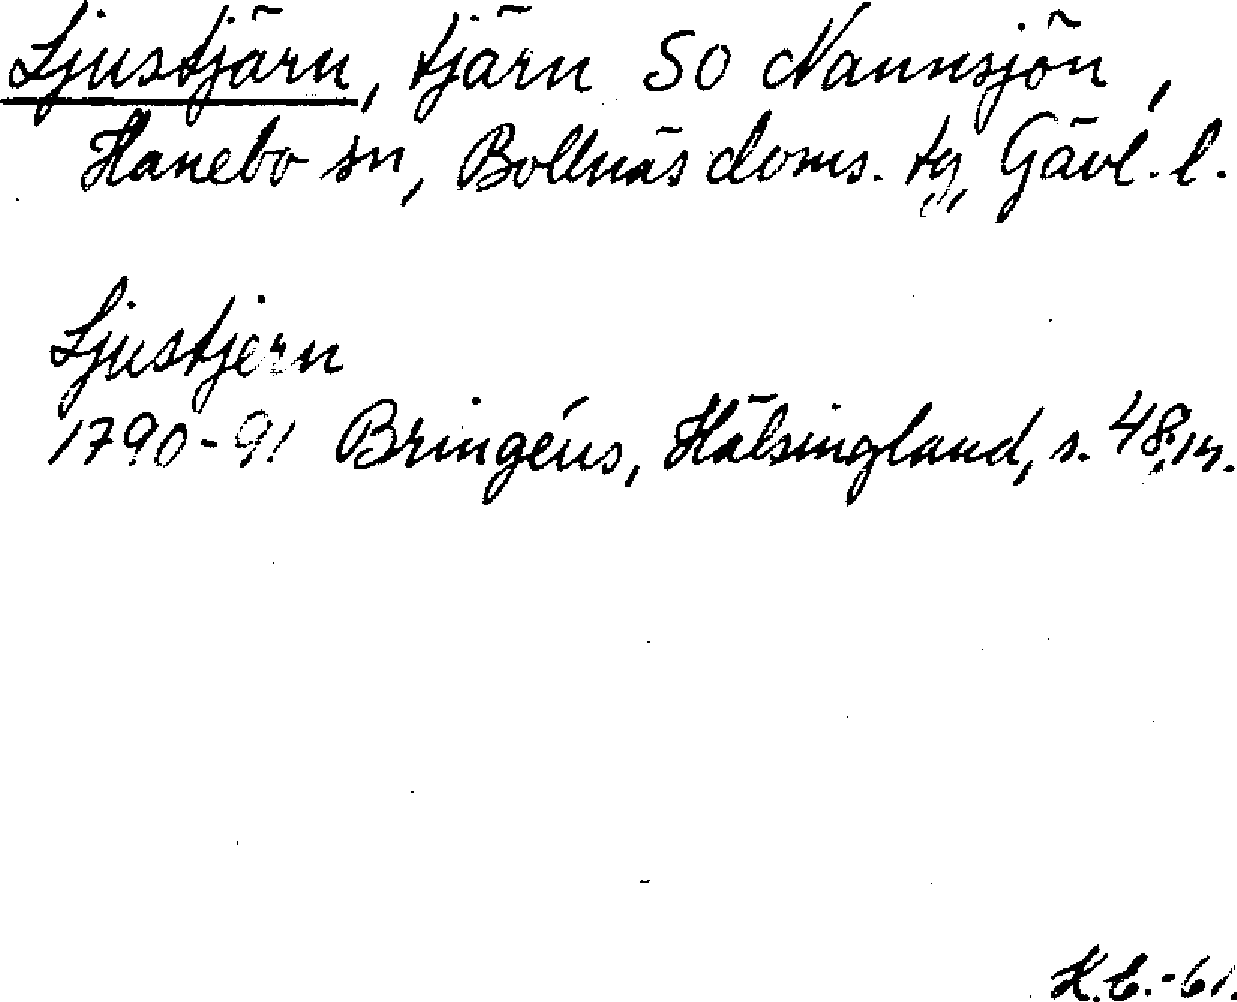 Ljustjärn, tjärn SO Nannsjön,
Hanebo sn, Bollnäs doms. tg, Gävl. l.
Ljustjern
1790-91 Bringéus, Hälsingland, s. 48,
K.C.-61.